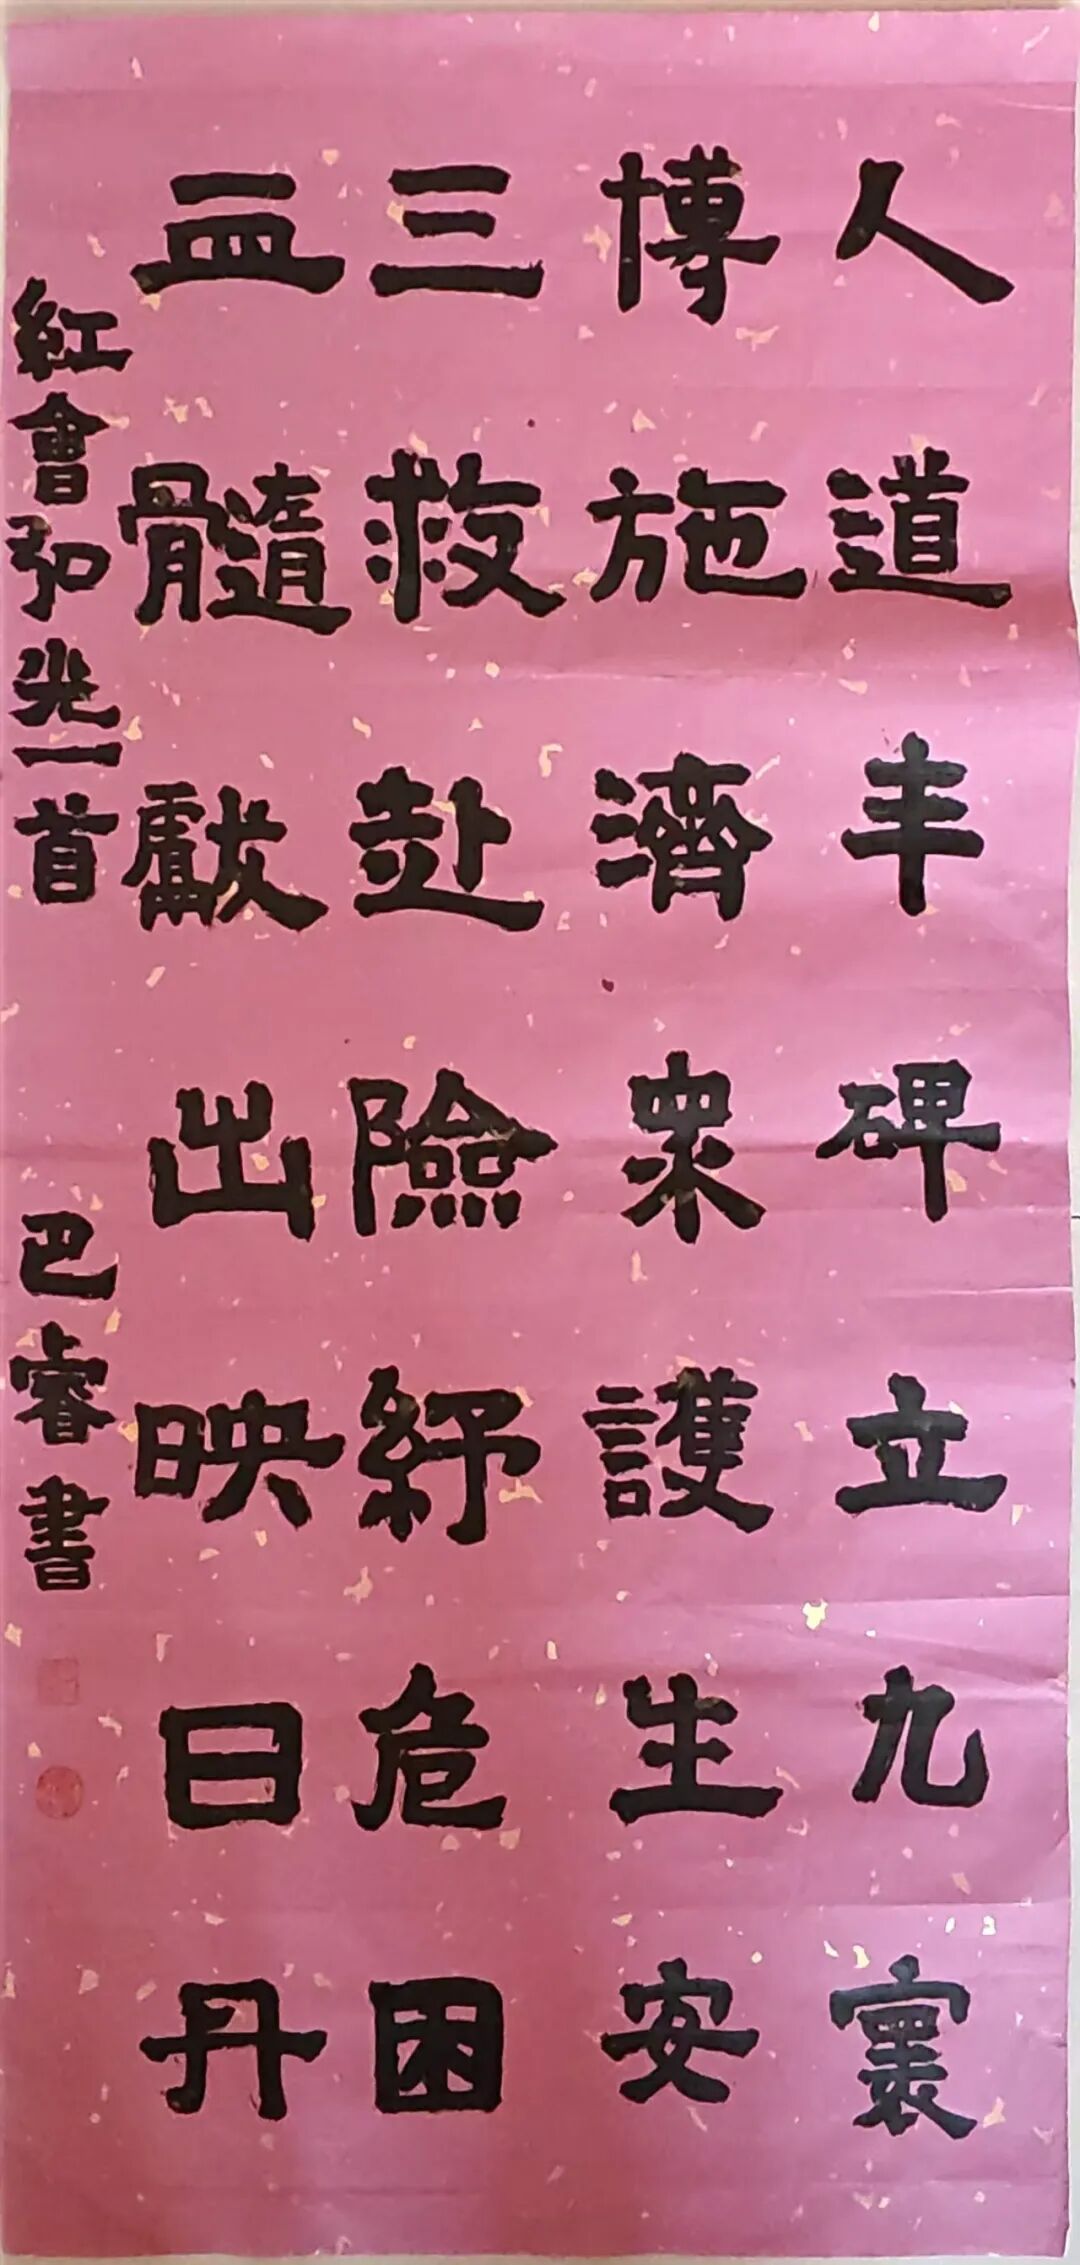 人道丰碑立九寰
博施濟眾護生安
三救赴險紓危困
血髓獻出映日丹
紅會弘光一首 巴睿書